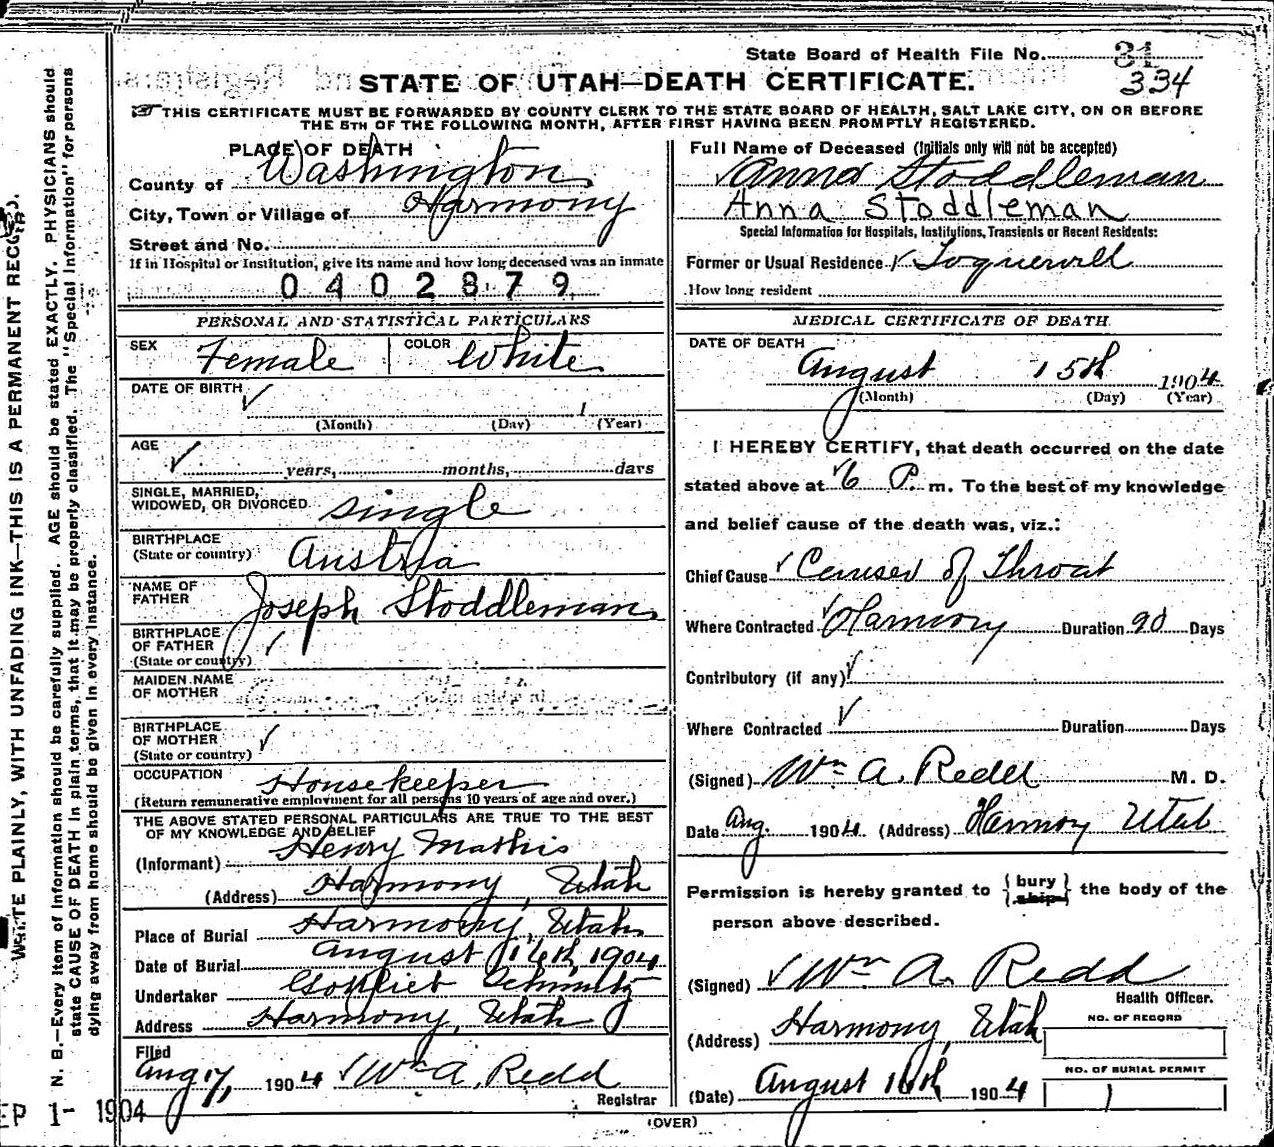 State Board of Health File No. 31
334
STATE OF UTAH—DEATH CERTIFICATE.
THIS CERTIFICATE MUST BE FORWARDED BY COUNTY CLERK TO THE STATE BOARD OF HEALTH, SALT LAKE CITY, ON OR BEFORE
THE 5TH OF THE FOLLOWING MONTH, AFTER FIRST HAVING BEEN PROMPTLY REGISTERED.
PLACE OF DEATH
County of Washington
City, Town or Village of Harmony
Street and No.
If in Hospital or Institution, give its name and how long deceased was an inmate
0402879
PERSONAL AND STATISTICAL PARTICULARS
SEX Female COLOR White
DATE OF BIRTH
(Month) (Day) 1 (Year)
AGE
years, months, days
SINGLE, MARRIED,
WIDOWED, OR DIVORCED single
BIRTHPLACE
(State or country) Austria
NAME OF
FATHER Joseph Stoddleman
BIRTHPLACE
OF FATHER
(State or country)
MAIDEN NAME
OF MOTHER
BIRTHPLACE
OF MOTHER
(State or country)
OCCUPATION Housekeeper
(Return remunerative employment for all persons 10 years of age and over.)
THE ABOVE STATED PERSONAL PARTICULARS ARE TRUE TO THE BEST
OF MY KNOWLEDGE AND BELIEF
(Informant) Henry Mathis
(Address) Harmony, Utah
Place of Burial Harmony, Utah
Date of Burial August 16th, 1904
Undertaker Gottlieb Schmutz
Address Harmony, Utah
Filed
Aug 17, 1904 Wm A. Redd
Registrar
Full Name of Deceased (Initials only will not be accepted)
Anna Stoddleman
Anna Stoddleman
Special Information for Hospitals, Institutions, Transients or Recent Residents:
Former or Usual Residence Toquervill
How long resident
MEDICAL CERTIFICATE OF DEATH
DATE OF DEATH
August 15th 1904
(Month) (Day) (Year)
I HEREBY CERTIFY, that death occurred on the date
stated above at 6 P. m. To the best of my knowledge
and belief cause of the death was, viz.:
Chief Cause Canser of Throat
Where Contracted Harmony Duration 90 Days
Contributory (if any)
Where Contracted Duration Days
(Signed) Wm A. Redd M. D.
Date Aug. 1904 (Address) Harmony Utah
Permission is hereby granted to { bury ship } the body of the
person above described.
(Signed) Wm A. Redd
Health Officer.
(Address) Harmony, Utah
NO. OF RECORD
(Date) August 16th 1904
NO. OF BURIAL PERMIT
1
(OVER)
WRITE PLAINLY, WITH UNFADING INK—THIS IS A PERMANENT RECORD.
N. B.—Every item of information should be carefully supplied. AGE should be stated EXACTLY. PHYSICIANS should
state CAUSE OF DEATH in plain terms, that it may be properly classified. The "Special Information" for persons
dying away from home should be given in every instance.
EP 1- 1904